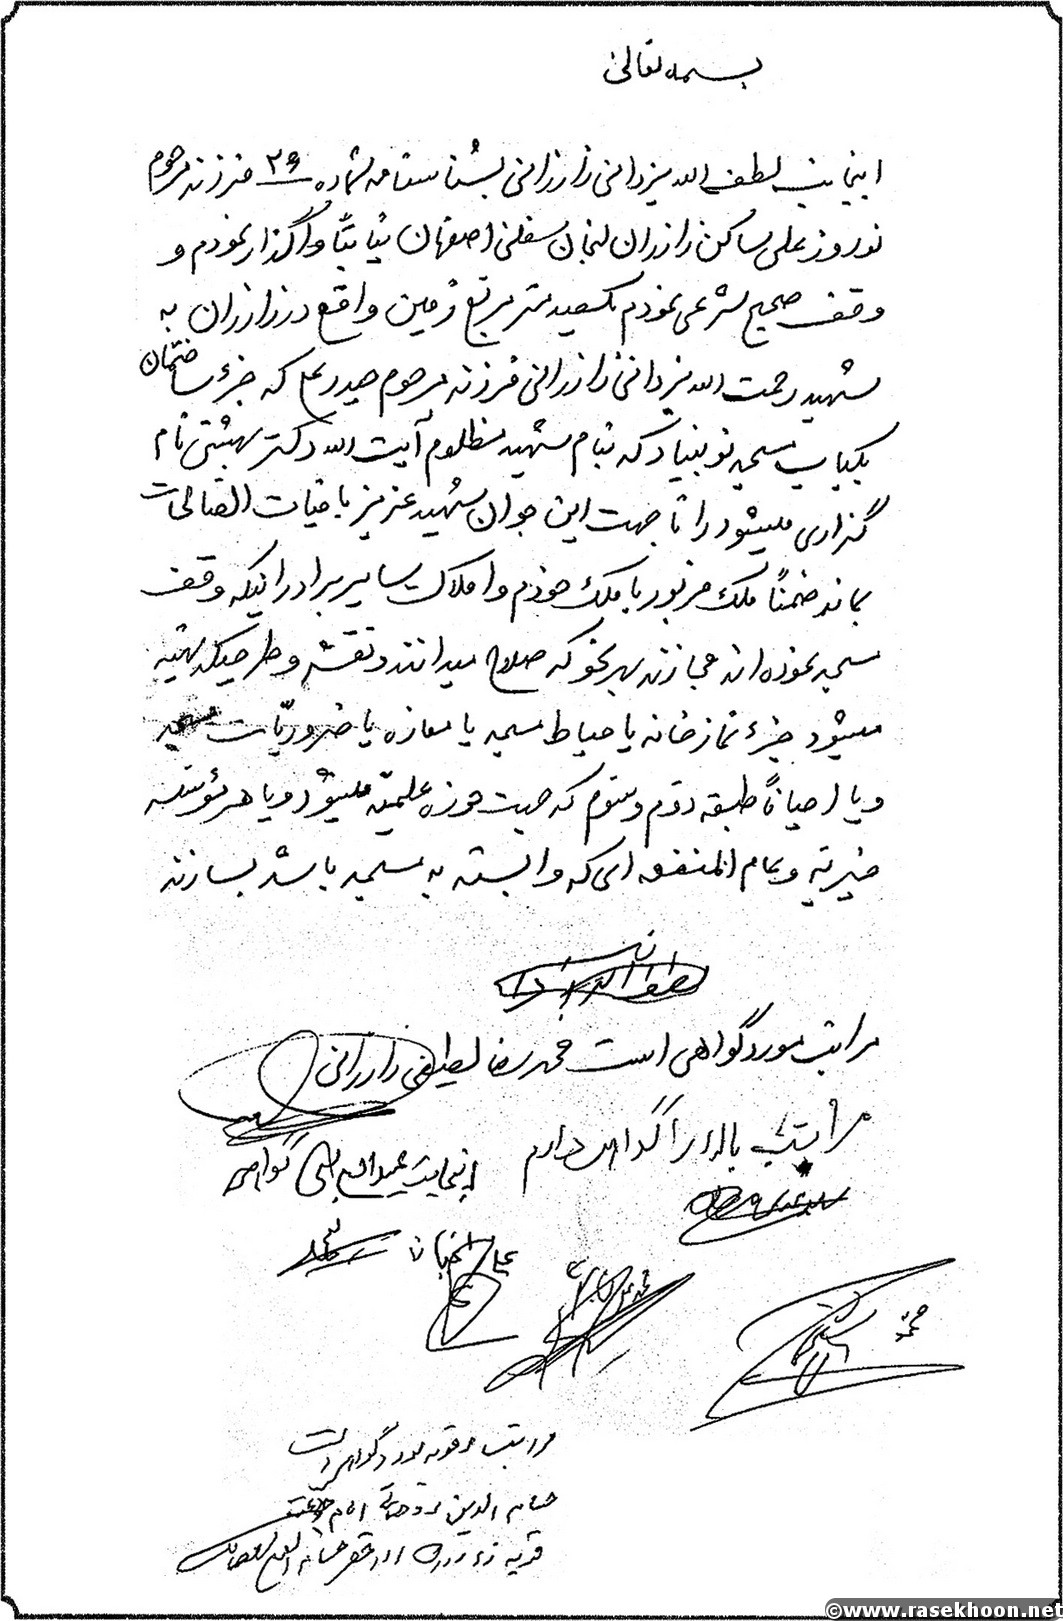 بسمه تعالی
اینجانب لطف الله یزدانی زازرانی بشناسنامه شماره ۲۹ فرزند مرحوم
نوروز علی ساکن زازران لنجان سفلی اصفهان نیابتاً واگذار نمودم و
وقف صحیح شرعی نمودم یکصد متر مربع زمین واقع در زازران به
شهید رحمت الله یزدانی زازرانی فرزند مرحوم حیدر علی که جزء ساختمان
یکباب مسجد نوبنیاد که بنام شهید مظلوم آیت الله دکتر بهشتی نام
گذاری میشود را تا جهت این جوان شهید عزیز باقیات الصالحات
بماند ضمناً ملک مزبور با ملک خودم و املاک سایر برادرانیکه وقف
مسجد نموده اند مجازند بهر نحو که صلاح میدانند و نقشه و طرحیکه تهیه
میشود جزء نمازخانه یا حیاط مسجد یا مغازه یا ضروریّات مسجد
و یا احیاناً طبقه دوّم و سوّم که جهت حوزه علمیّه میشود و یا هر مؤسسه
خیریّه و عام المنفعه ای که وابسته به مسجد باشد بسازند
لطف الله یزدانی
مراتب مورد گواهی است محمد رضا لطیفی زازرانی
مراتب بالا را گواهی دارم
اینجانب عبدالله گواهم
علی
محمد
مراتب مرقومه مورد گواهی است
حسام الدین امام جماعت
قریه زازران
©www.rasekhoon.net